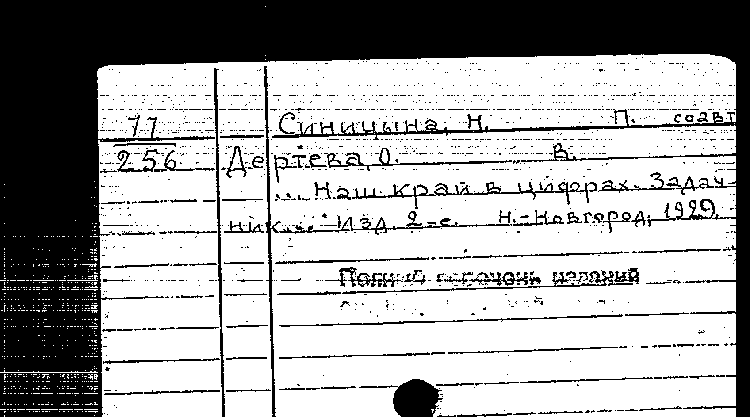 11 Синицына, Н. П. соавт
256 Дертева, О. В.
... Наш край в цифрах. Задач
ник... Изд. 2-е. Н.-Новгород, 1929.
Полный перечень изданий